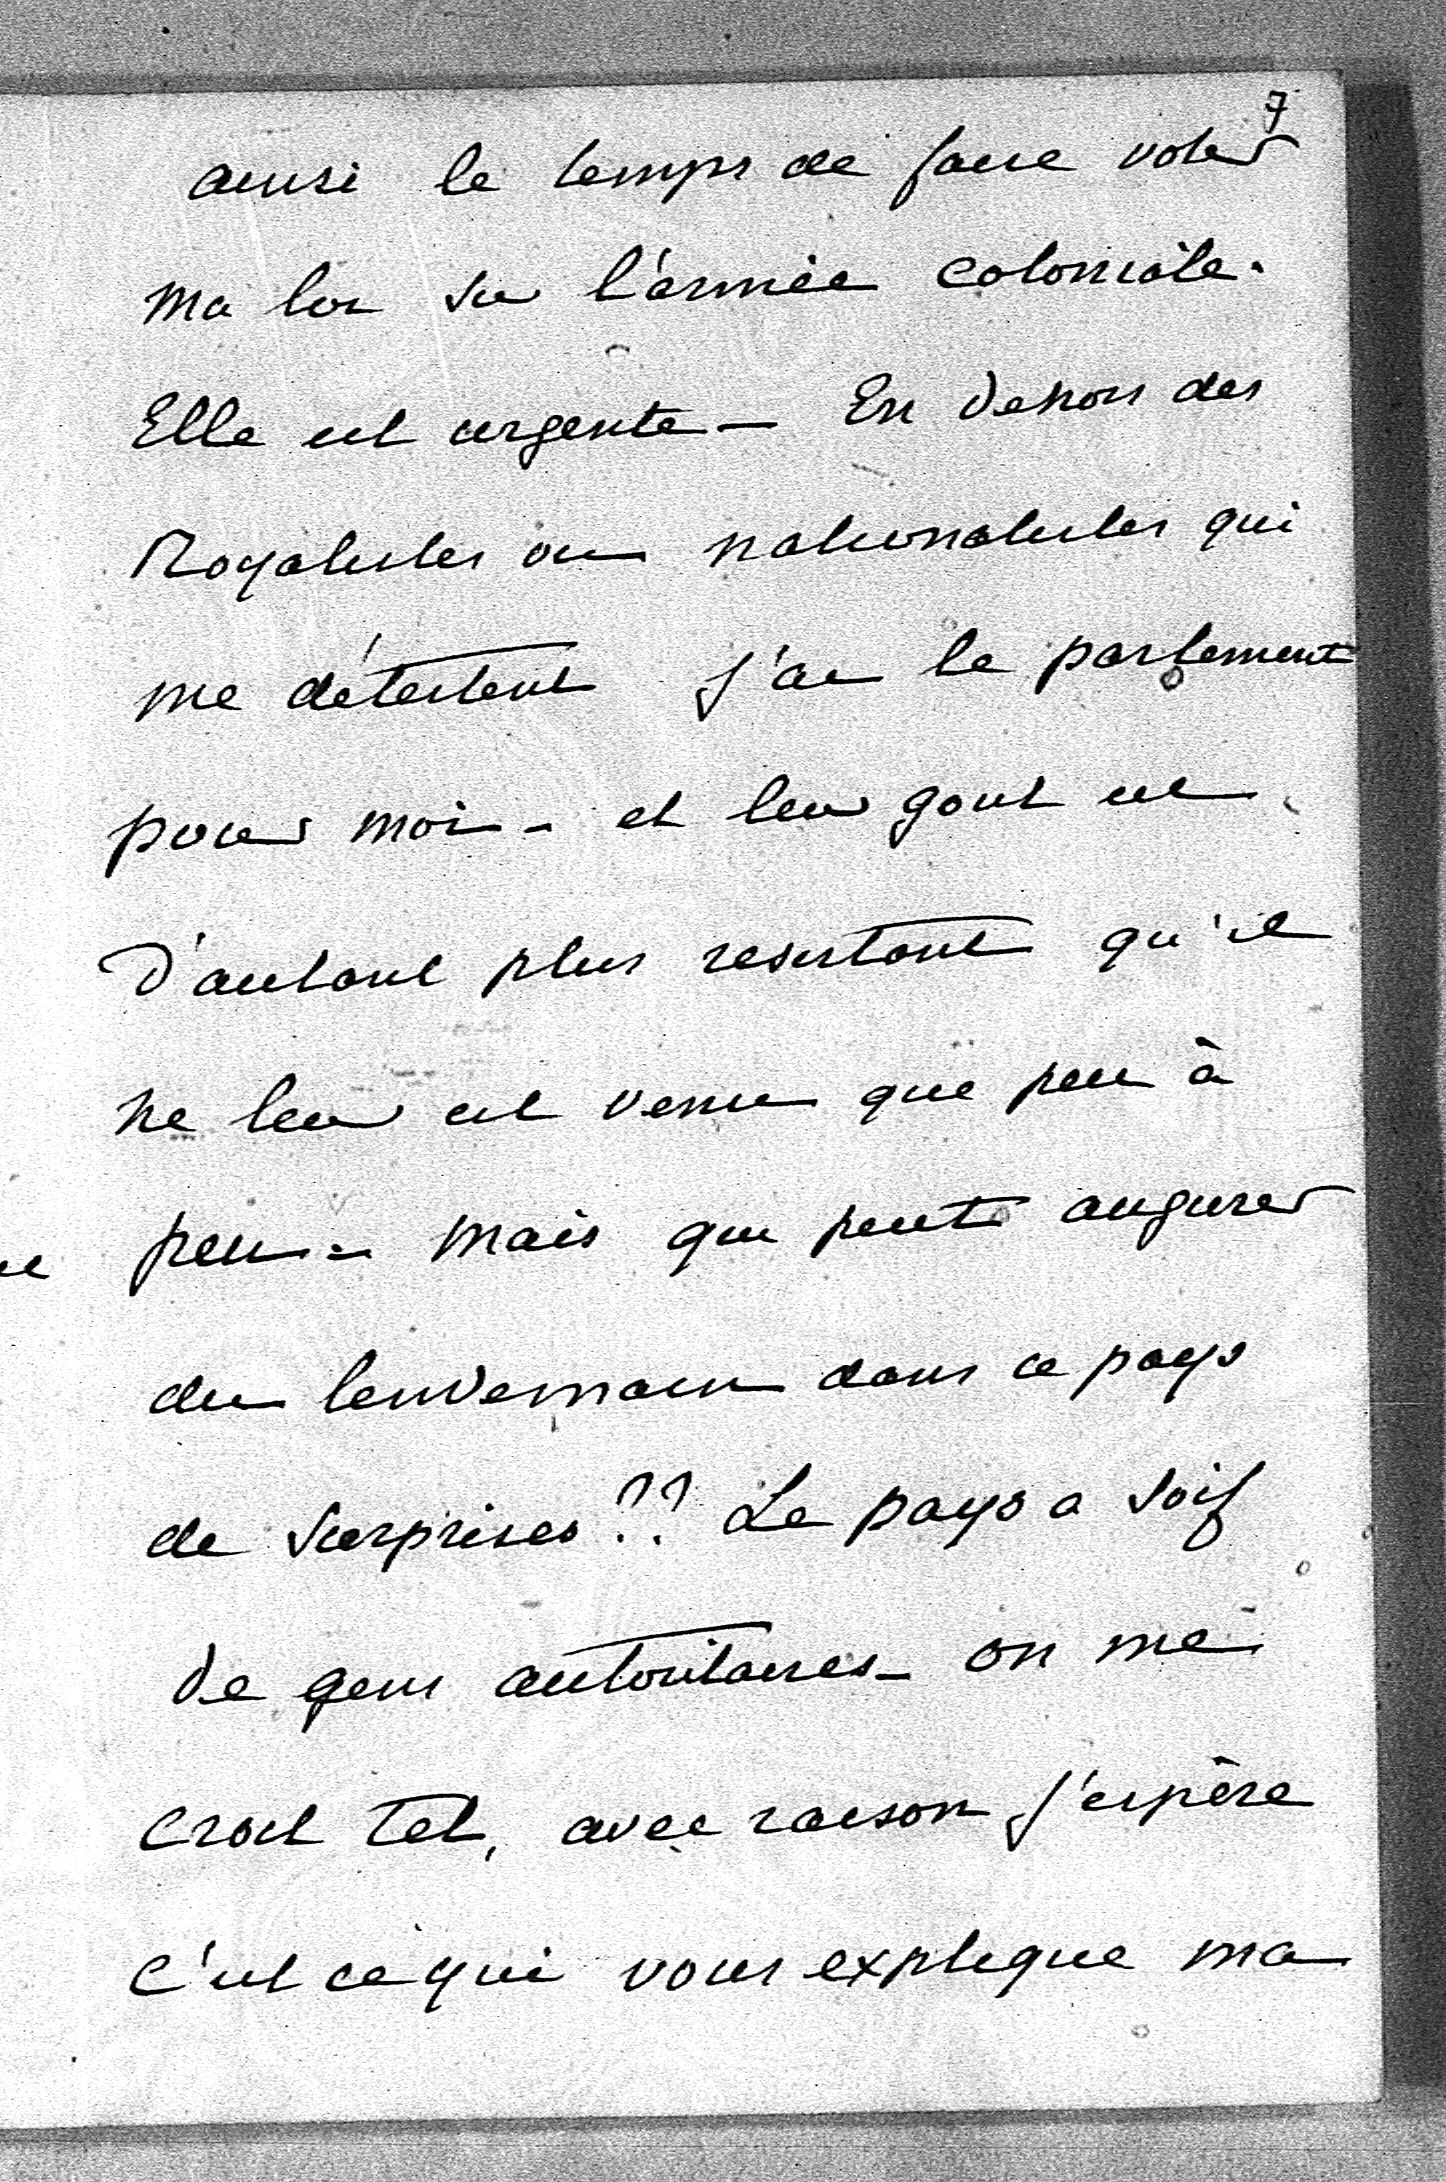 7
ainsi le temps de faire voter
ma loi sur l'armée coloniale.
Elle est urgente - En dehors des
Royalistes ou nationalistes qui
me détestent j'ai le parlement
pour moi - et leur gout est
d'autant plus résistant qu'il
ne leur est venu que peu à
peu - mais que peut augurer
du lendemain dans ce pays
de surprises ?? Le pays a soif
de gens autoritaires - on me
croit tel, avec raison j'espère
c'est ce qui vous explique ma